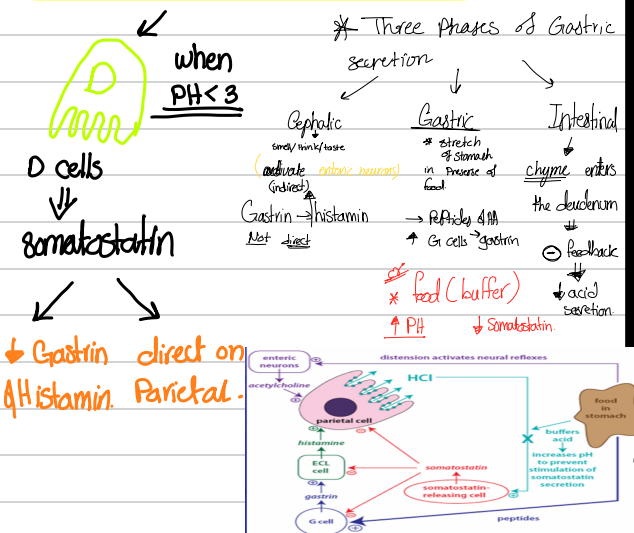 * Three phases of Gastric
secretion
when
PH < 3
D
D cells
somatostatin
↓ Gastrin
& Histamin.
direct on
Parietal.
Cephalic
smell/think/taste
(activate enteric neurons)
(indirect)
Gastrin → histamin
Not direct
Gastric
* stretch
of stomach
in Presense of
food.
→ Peptides & AA
↑ G cells → gastrin
or
* food (buffer)
↑ PH ↓ Somatostatin.
Intestinal
chyme enters
the deudenum
⊖ feedback
↓ acid
secretion.
enteric
neurons
distension activates neural reflexes
acetylcholine
HCl
parietal cell
histamine
ECL
cell
gastrin
G cell
somatostatin
somatostatin-
releasing cell
peptides
food
in
stomach
X
buffers
acid
increases pH
to prevent
stimulation of
somatostatin
secretion